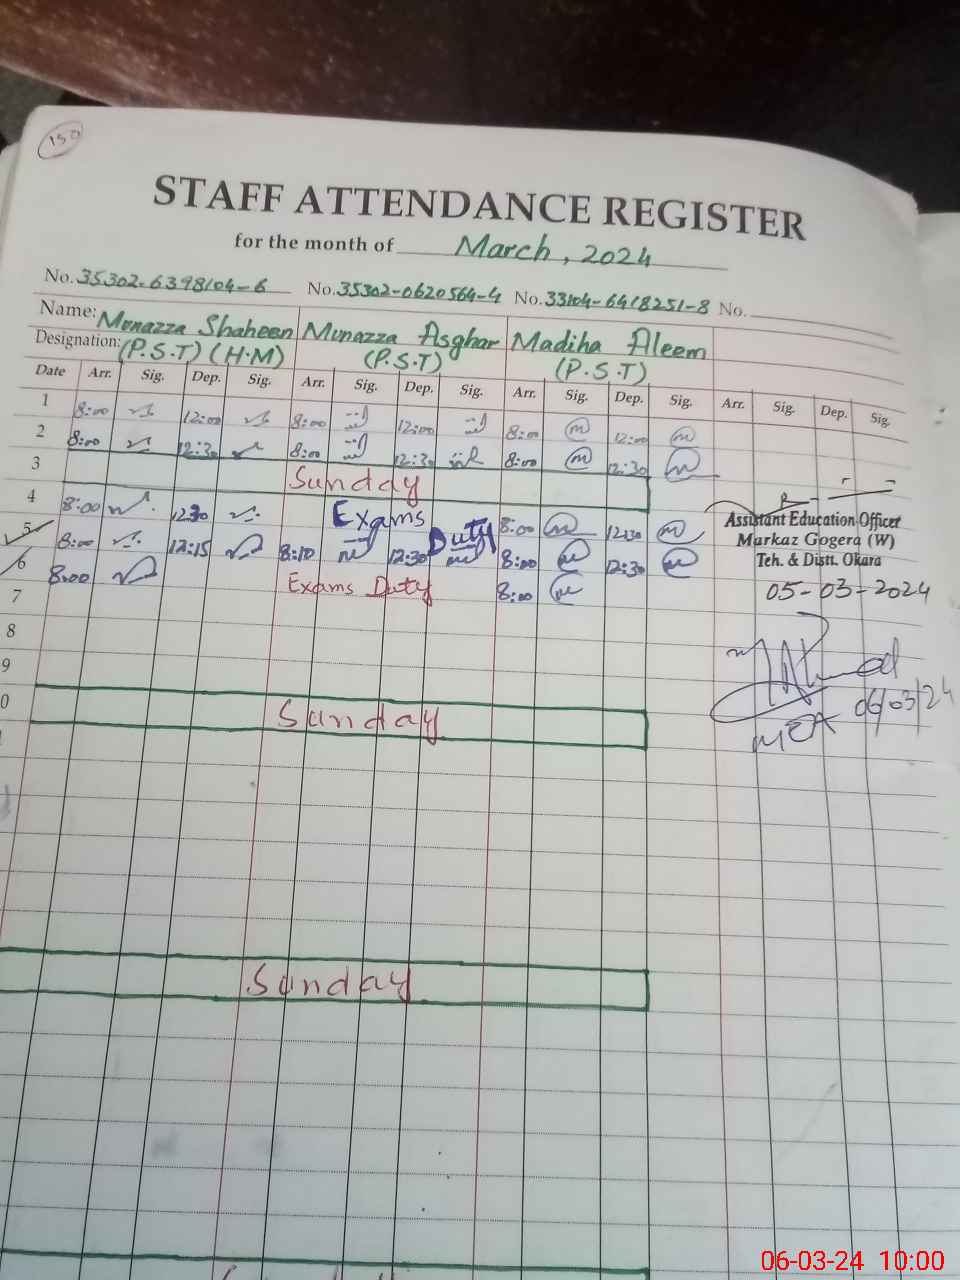 150
STAFF ATTENDANCE REGISTER
for the month of March, 2024
No. 35302-6398104-6 No. 35302-0620564-4 No. 33104-6418251-8 No.
Name: Munazza Shaheen Munazza Asghar Madiha Aleem
Designation: (P.S.T) (H.M) (P.S.T) (P.S.T)
Date Arr. Sig. Dep. Sig. Arr. Sig. Dep. Sig. Arr. Sig. Dep. Sig. Arr. Sig. Dep. Sig.
1 8:00 12:00 8:00 12:00 8:00 12:00
2 8:00 12:30 8:00 12:30 8:00 12:30
3 Sunday
4 8:00 12:30 Exams Duty 8:00 12:30
5 8:00 12:15 8:10 12:30 8:00 12:30
6 8:00 Exams Duty 8:00
7
8
9
0 Sunday
Assistant Education Officer
Markaz Gogera (W)
Teh. & Distt. Okara
05-03-2024
06/03/24
MEA
Sunday
06-03-24 10:00